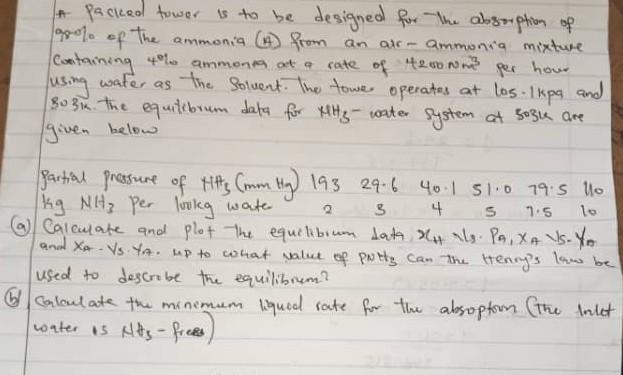 A packed tower is to be designed for the absorption of
98% of the ammonia (A) from an air - ammonia mixture
Containing 4% ammonia at a rate of 4200 Nm³ per hour
using water as the Solvent. The tower operates at 105.1kpa and
303k. the equilibrium data for NH₃ - water system at 303k are
given below
Partial pressure of NH₃ (mm Hg) 193 29.6 40.1 51.0 79.5 110
kg NH₃ per 100kg water 2 3 4 5 7.5 10
(a) Calculate and plot the equilibrium data, Vs. PA, XA Vs. YA
and XA - Vs. YA. up to what value of PNH₃ can the Henry's law be
used to describe the equilibrium?
(b) Calculate the minimum liquid rate for the absorption (The Inlet
water is NH₃ - free)